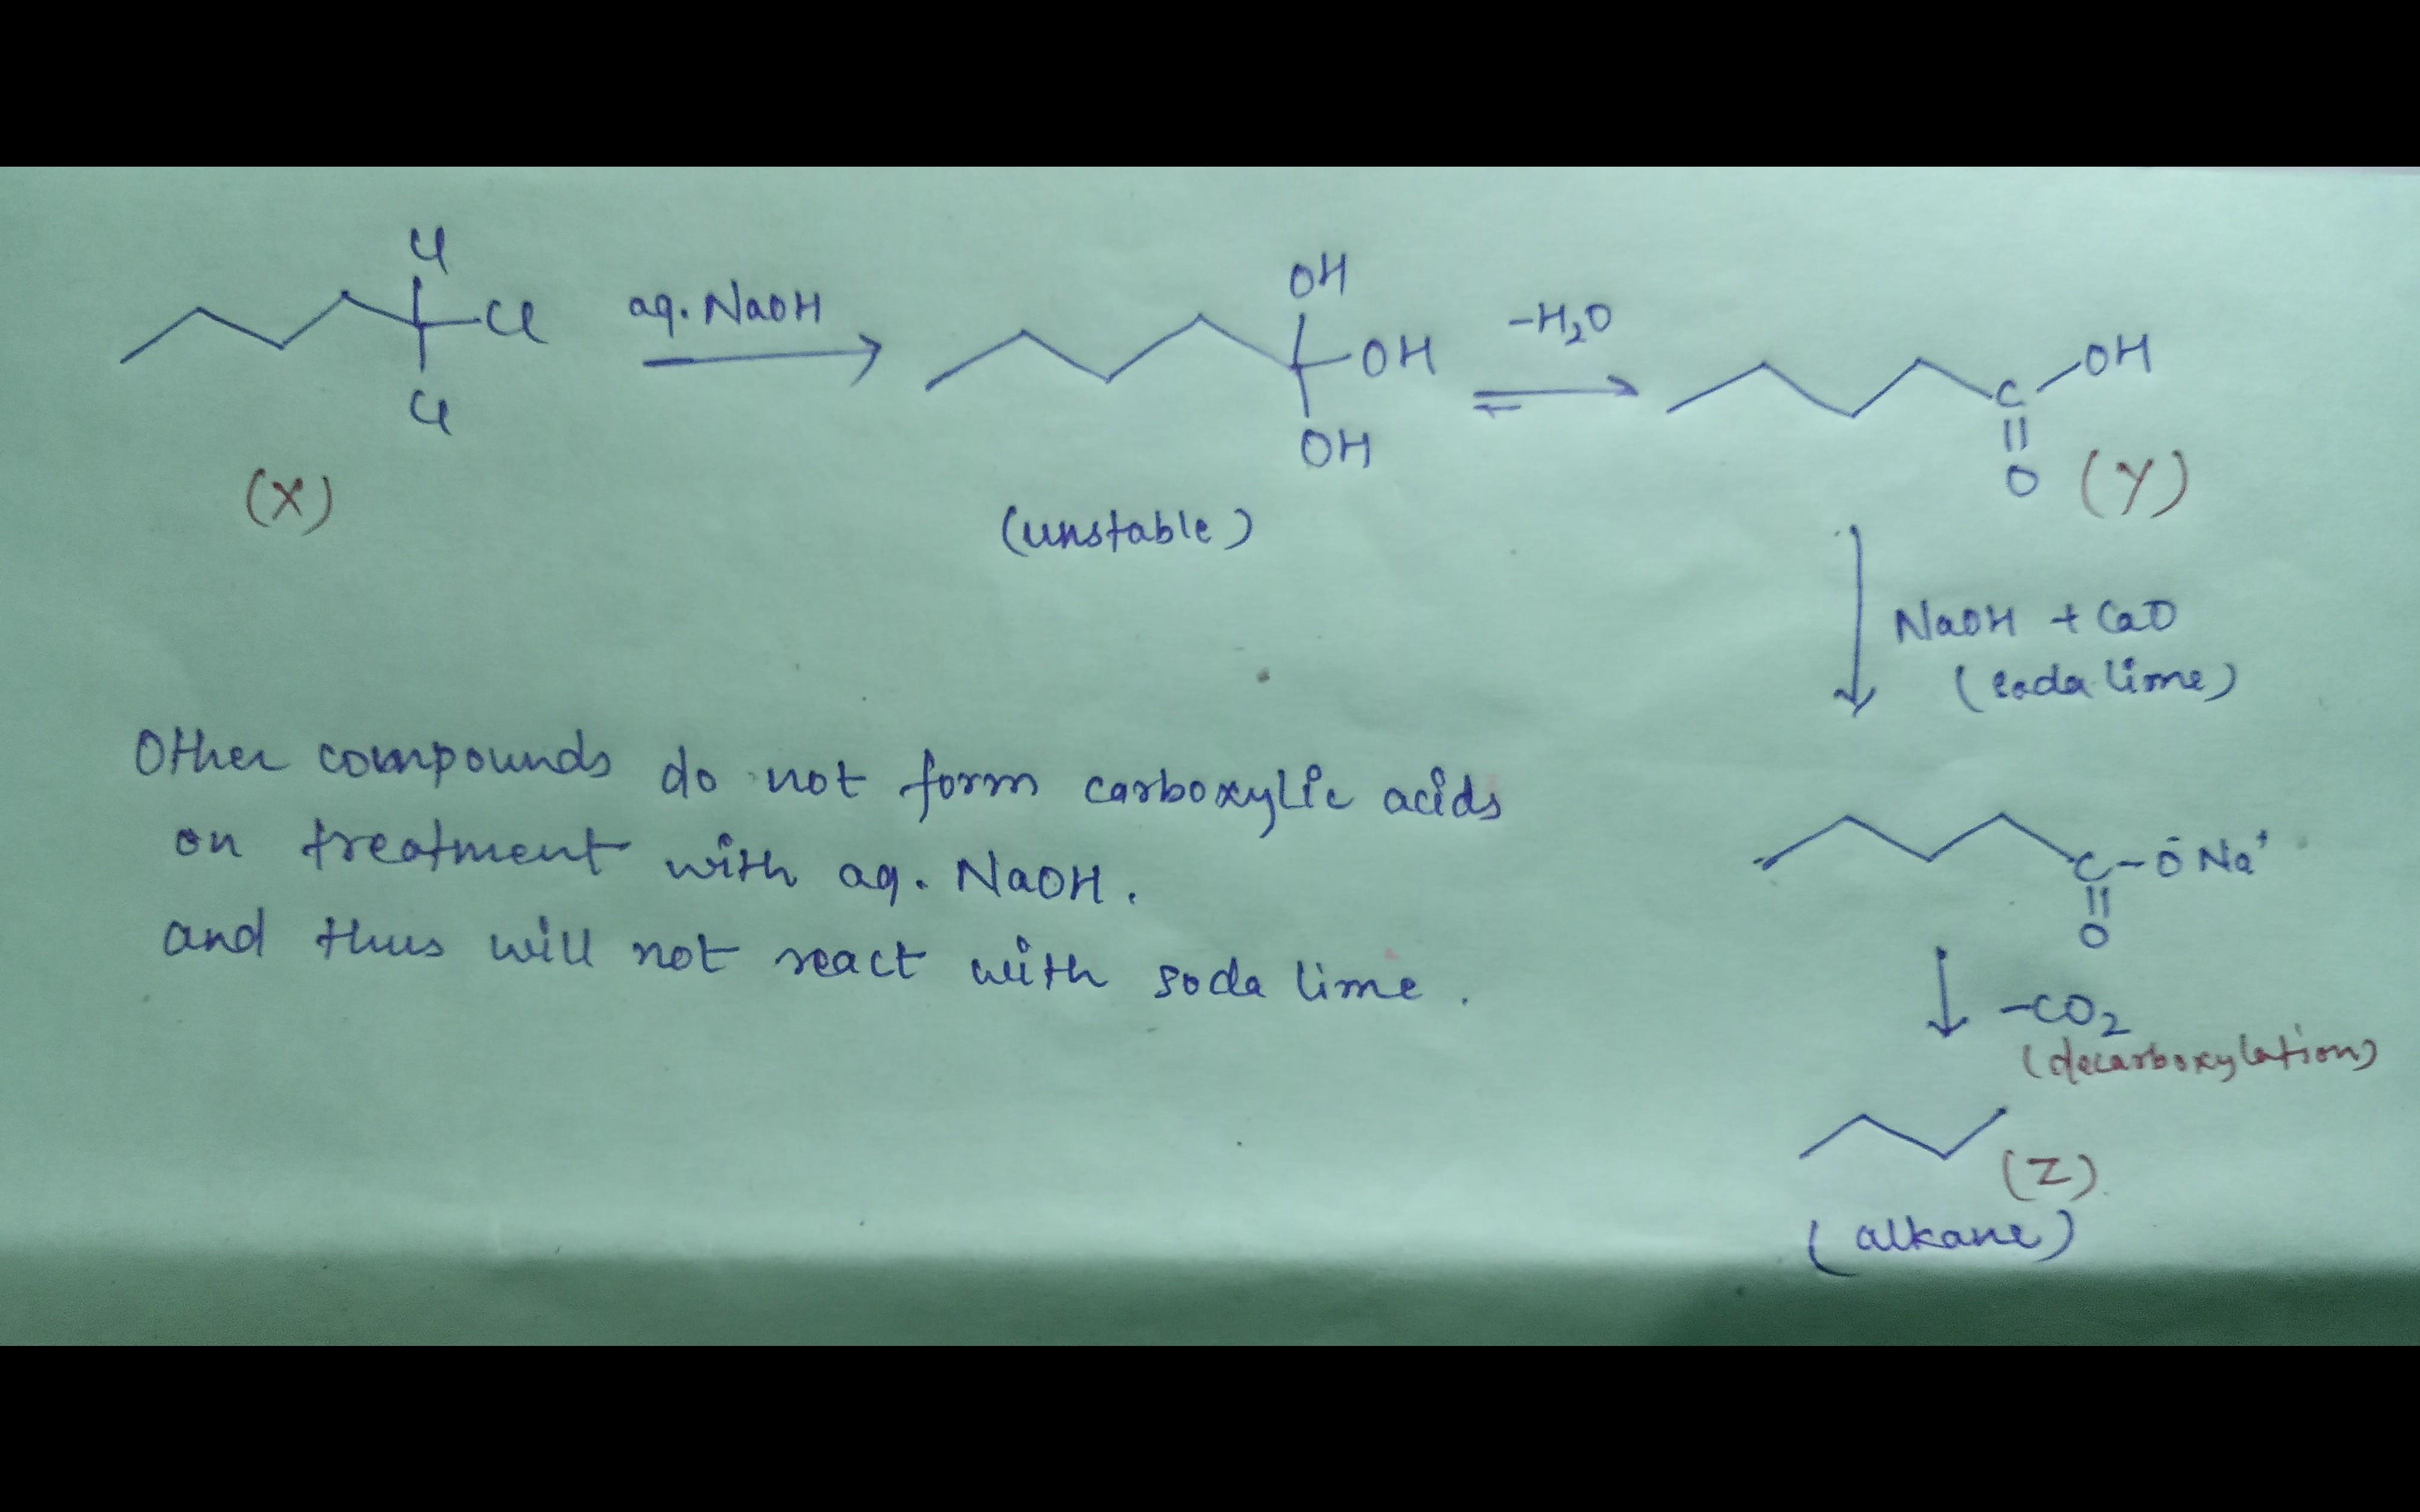 Cl
Cl
Cl
(X)
aq. NaOH
OH
OH
OH
(unstable)
-H₂O
OH
C
O
(Y)
NaOH + CaO
(soda lime)
C-ŌNa⁺
O
-CO₂
(decarboxylation)
(Z)
(alkane)
Other compounds do not form carboxylic acids
on treatment with aq. NaOH.
and thus will not react with soda lime.